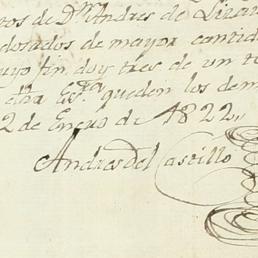 pos de Dn. Andres de Linar
dosados de mayor cantid
uyo fin doy tres de un t
esta Esc.a queden los dem
2 de Enero de 1822,,
Andres del Castillo